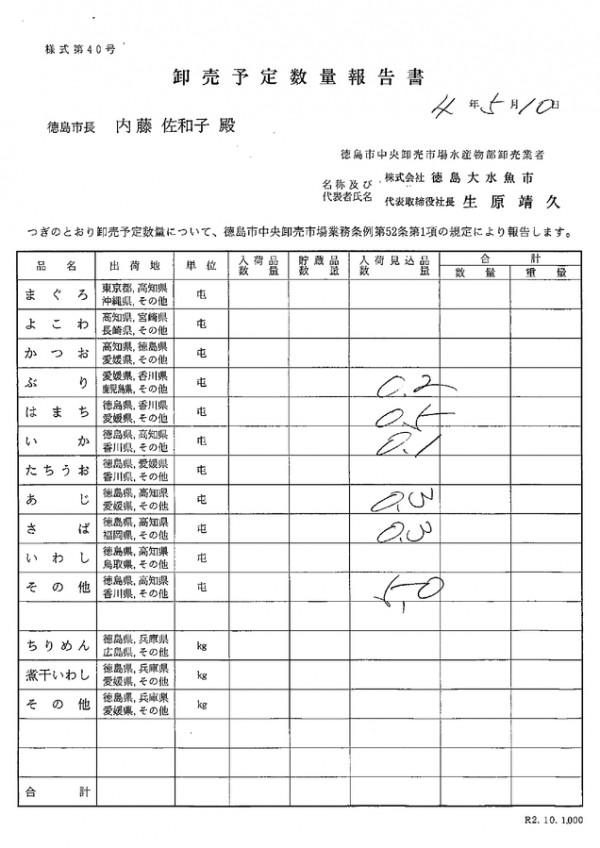 様式第40号
卸売予定数量報告書
4年5月10日
徳島市長 内藤 佐和子 殿
徳島市中央卸売市場水産物部卸売業者
名称及び 株式会社 徳島大水魚市
代表者氏名 代表取締役社長 生原靖久
つぎのとおり卸売予定数量について、徳島市中央卸売市場業務条例第52条第1項の規定により報告します。
品名 出荷地 単位 入荷品数量 貯蔵品数量 入荷見込品数量 合計
数量 重量
まぐろ 東京都,高知県 屯
沖縄県,その他
よこわ 高知県,宮崎県 屯
長崎県,その他
かつお 高知県,徳島県 屯
愛媛県,その他
ぶり 愛媛県,香川県 屯 0.2
鹿児島県,その他
はまち 徳島県,香川県 屯 0.5
愛媛県,その他
いか 徳島県,高知県 屯 0.1
香川県,その他
たちうお 徳島県,愛媛県 屯
香川県,その他
あじ 徳島県,高知県 屯 0.3
愛媛県,その他
さば 徳島県,高知県 屯 0.3
福岡県,その他
いわし 徳島県,高知県 屯
鳥取県,その他
その他 徳島県,高知県 屯 5.0
香川県,その他
ちりめん 徳島県,兵庫県 kg
広島県,その他
煮干いわし 徳島県,兵庫県 kg
愛媛県,その他
その他 徳島県,兵庫県 kg
愛媛県,その他
合計
R2.10.1,000